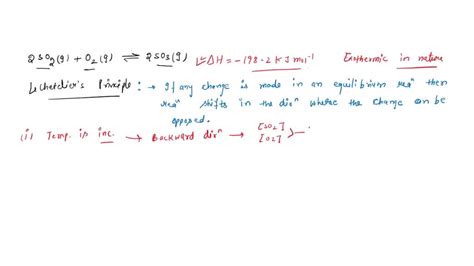 2SO2(g) + O2(g) ⇌ 2SO3(g) ΔH = -198.2 kJ mol-1 Exothermic in nature
Lechatelier's Principle : → If any change is made in an equilibrium reaⁿ then
reaⁿ shifts in the dirⁿ where the change can be
opposed.
(i) Temp. is inc. → Backward dirⁿ → [SO2]
[O2] > —